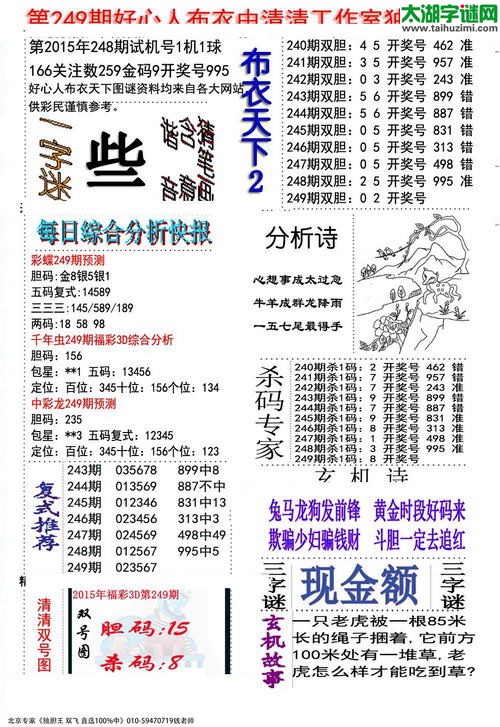 第249期好心人布衣中清清工作室独
太湖字谜网
www.taihuzimi.com
第2015年248期试机号1机1球
166关注数259金码9开奖号995
好心人布衣天下图谜资料均来自各大网站
供彩民谨慎参考。
一字谜
些
布衣天下2
240期双胆：4 5 开奖号 462 准
241期双胆：3 5 开奖号 957 准
242期双胆：0 3 开奖号 243 准
243期双胆：5 6 开奖号 899 错
244期双胆：5 6 开奖号 887 错
245期双胆：0 6 开奖号 831 错
246期双胆：0 5 开奖号 313 错
247期双胆：0 2 开奖号 498 错
248期双胆：2 5 开奖号 995 准
249期双胆：0 2 开奖号
每日综合分析快报
彩蝶249期预测
胆码:金8银5银1
五码复式:14589
三三三:145/589/189
两码：18 58 98
千年虫249期福彩3D综合分析
胆码：156
包星：**1 五码：13456
定位：百位：345十位：156个位：134
中彩龙249期预测
胆码：235
包星：**3 五码复式：12345
定位：百位：345十位：156个位：123
分析诗
心想事成太过急
牛羊成群龙降雨
一五七尾最得手
杀码专家
240期杀1码：2 开奖号 462 错
241期杀1码：7 开奖号 957 错
242期杀1码：7 开奖号 243 准
243期杀1码：9 开奖号 899 错
244期杀1码：7 开奖号 887 错
245期杀1码：9 开奖号 831 准
246期杀1码：2 开奖号 313 准
247期杀1码：1 开奖号 498 准
248期杀1码：3 开奖号 995 准
249期杀1码：8 开奖号
复式推荐
243期 035678 899中8
244期 013569 887不中
245期 012346 831中13
246期 023456 313中3
247期 024569 498中49
248期 012567 995中5
249期 023567
玄机诗
兔马龙狗发前锋 黄金时段好码来
欺骗少妇骗钱财 斗胆一定去追红
清清双号图
2015年福彩3D第249期
双号图
胆码:15
杀码:8
三字谜
现金额
三字谜
玄机故事
一只老虎被一根85米
长的绳子捆着，它前方
100米处有一堆草,老
虎怎么样才能吃到草?
北京专家《独胆王 双飞 直选100%中》010-59470719钱老师